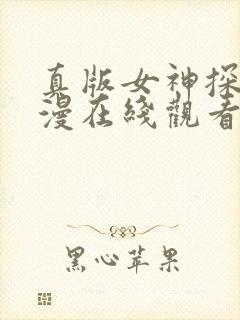 真版女神探
漫在綫觀看
黑心苹果